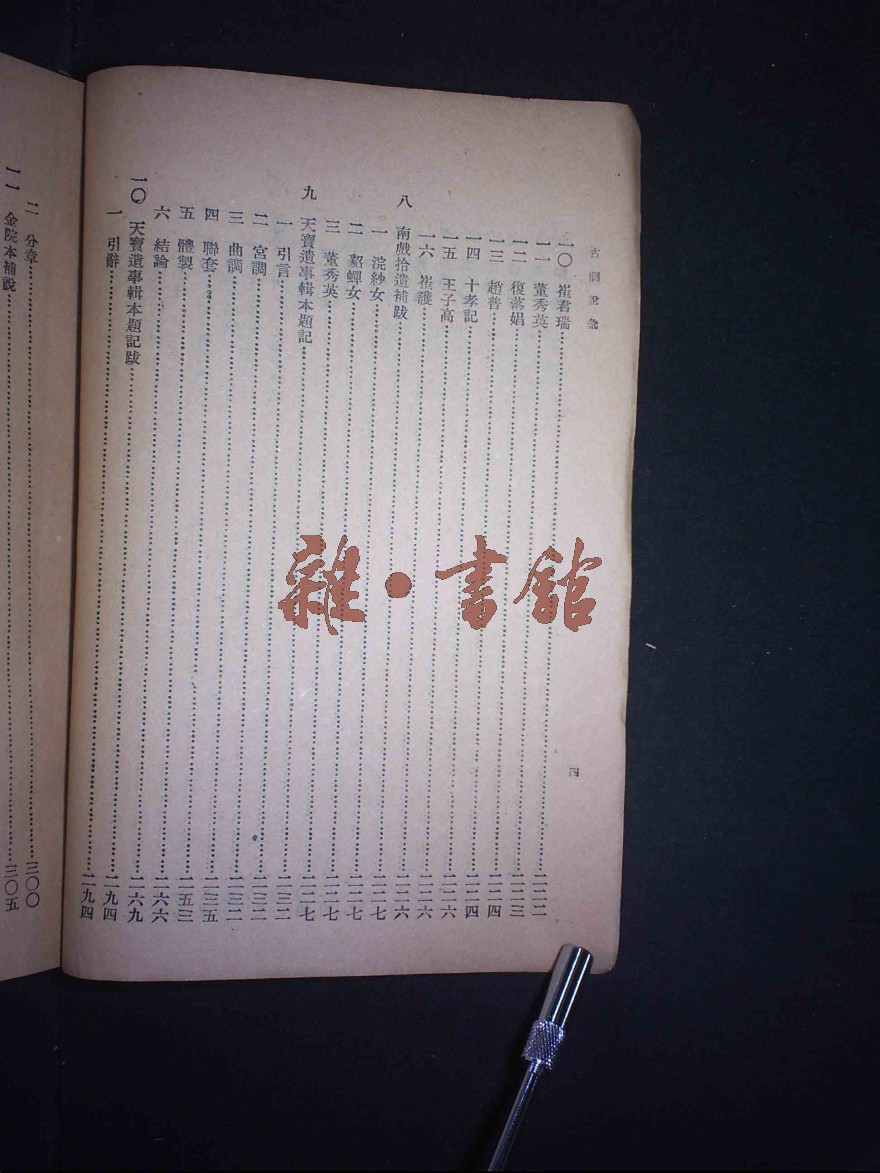 古劇說彙
四
一〇 崔君瑞……二二二
一一 董秀英……二二三
一二 復落娼……二二四
一三 趙普……二二四
一四 十孝記……二二六
一五 王子高……二二六
一六 崔護……二二六
八 南戲拾遺補跋……二二七
一 浣紗女……二二七
二 貂蟬女……二二七
三 董秀英……二二七
九 天寶遺事輯本題記……二三二
一 引言……二三二
二 宮調……二三二
三 曲調……二三五
四 聯套……二五三
五 體製……二六六
六 結論……二六九
一〇 天寶遺事輯本題記跋……二九四
一 引辭……二九四
二 分章……三〇〇
一一 金院本補說……三〇五
雜·書館